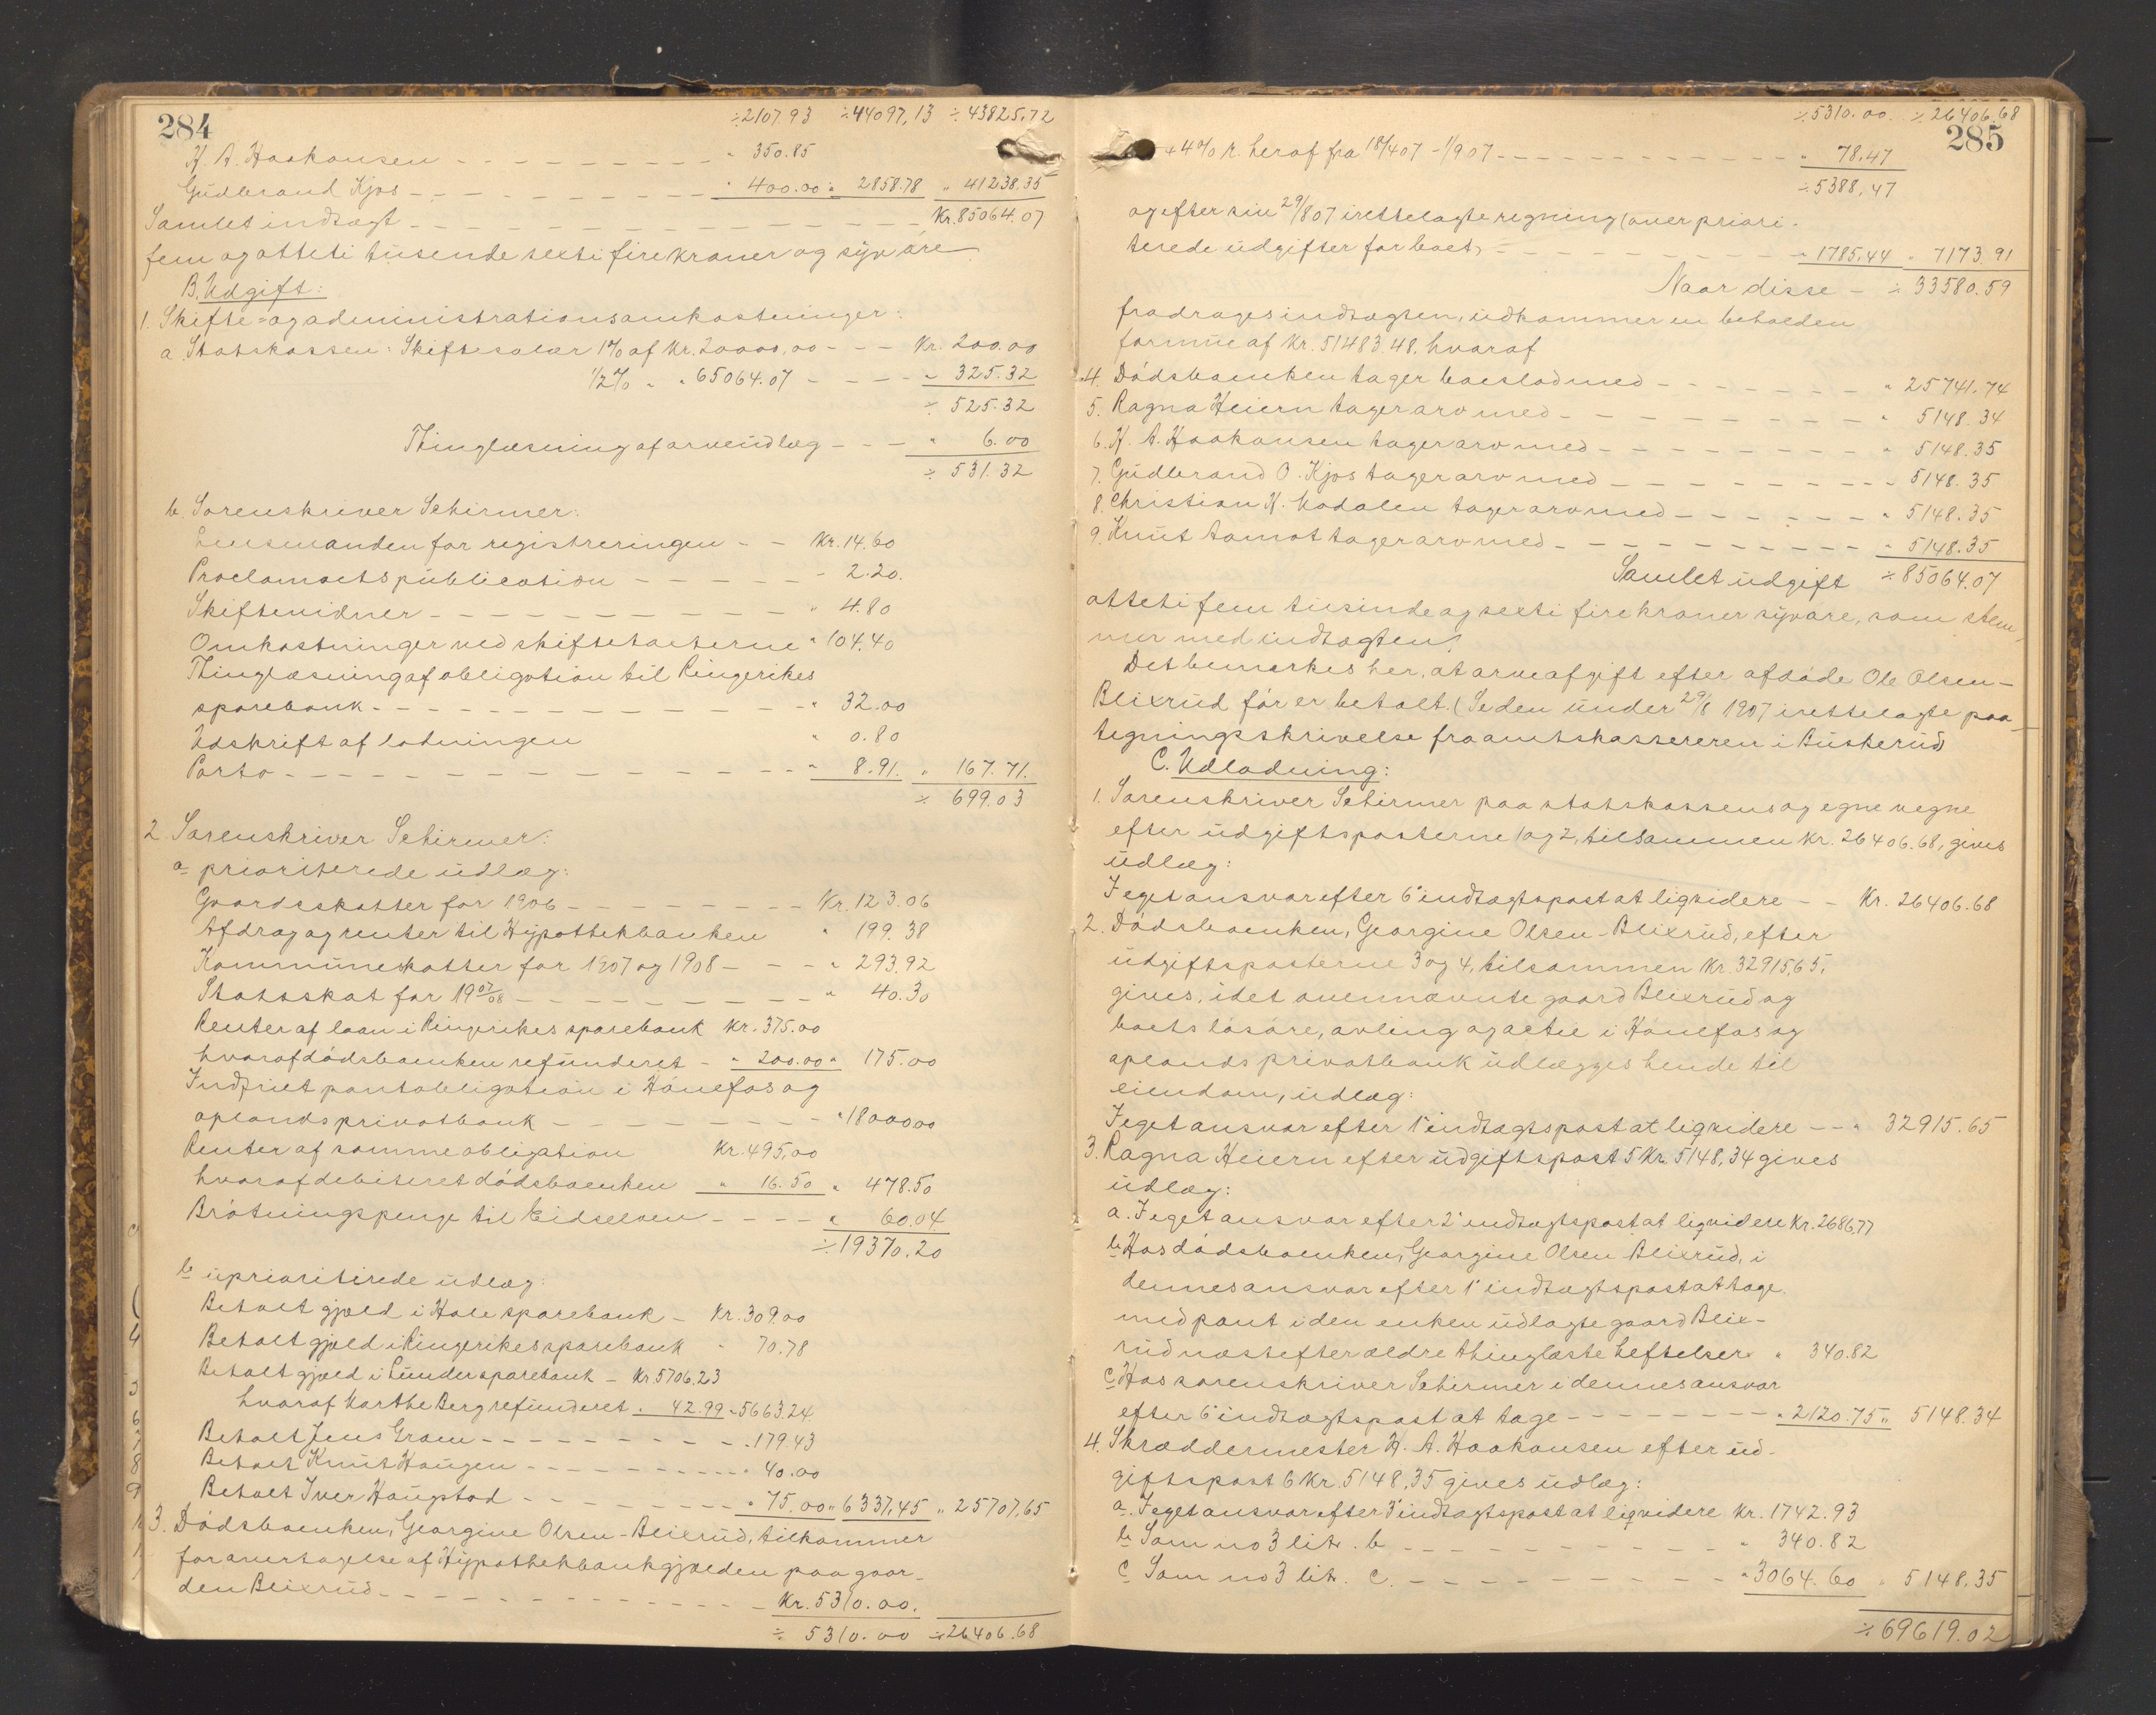 284
÷2107.93 ÷44097,13 ÷43825,72
K. A. Haakonsen - - - " 350.85
Gudbrand Kjos - - - " 400.00 " 2858.78 " 41238,35
Samlet indtægt - - - Kr. 85064.07
fem og otteti tusende sexti fire kroner og syv øre
B. Udgift:
1. Skifte- og administrationsomkostninger:
a Statskassen: Skiftesalær 1% af Kr. 20000,00 - - - Kr. 200.00
1/2% " " 65064.07 - - - " 325.32
÷ 525.32
Thinglæsning af arveudlæg - - - " 6.00
÷ 531.32
b. Sorenskriver Schirmer:
Lensmanden for registreringen - - Kr. 14.60
Proclamaets publication - - - " 2.20.
Skiftevidner - - - " 4.80
Omkostninger ved skiftetaksterne " 104.40
Thinglæsning af obligation til Ringerikes
sparebank - - - " 32.00
Udskrift af lodningen " 0.80
Porto - - - " 8.91. " 167.71.
÷ 699.03
2 Sorenskriver Schirmer:
a prioriterede udlæg:
Gaardsskatter for 1906 - - - Kr. 123.06
Afdrag og renter til Hypothekbanken " 199.38
Kommuneskatter for 1907 og 1908 - - - " 293.92
Statsskat for 19 07/08 - - - " 40.30
Renter af laan i Ringerikes sparebank Kr. 375.00
hvoraf dødsboenken refunderet - " 200.00 " 175.00
Indfriet pantobligation i Hønefos og
oplands privatbank - - - " 18000.00
Renter af samme obligation Kr. 495,00
hvoraf debiteret dødsboenken " 16.50 " 478.50
Brøtningspenge til Eidselven - - - " 60.04
÷ 19370.20
b upriorit­erede udlæg:
Betalt gjæld i Hole sparebank - Kr. 309.00
Betalt gjæld i Ringerikes sparebank " 70.78
Betalt gjæld i Lunder sparebank - Kr. 5706.23
hvoraf Marthe Berg refunderet " 42.99 " 5663.24
Betalt Jens Gram - - - " 179.43
Betalt Knut Haugen - - - " 40.00
Betalt Iver Haugstad - - - " 75.00 " 6337,45 " 25707,65
3. Dødsboenken, Georgine Olsen-Blixrud, tilkommer
for overtagelse af Hypothekbankgjælden paa gaar-
den Blixrud - - - Kr. 5310.00.
÷ 5310.00 ÷ 26406.68
÷5310.00. ÷ 26406.68
285
+ 4% r. heraf fra 18/4 07 - 1/9 07 - - - " 78.47
÷ 5388,47
og efter sin 29/8 07 irettelagte regning (over priori-
terede udgifter for boet) - - - " 1785.44 " 7173.91
Naar disse - ÷ 33580.59
fradrages indtægten, udkommer en beholden
formue af Kr. 51483.48, hvoraf
4. Dødsboenken tager boeslod med - - - " 25741.74
5. Ragna Heiern tager arv med - - - " 5148.34
6. K. A. Haakonsen tager arv med - - - " 5148.35
7. Gudbrand O. Kjos tager arv med - - - " 5148.35
8. Christian K. Vadalen tager arv med - - - " 5148.35
9. Knut Tamot tager arv med - - - " 5148.35
Samlet udgift ÷ 85064.07
otteti fem tusinde og sexti fire kroner syv øre, som stem-
mer med indtægten.
Det bemærkes her, at arveafgift efter afdøde Ole Olsen-
Blixrud før er betalt. (Se den under 29/8 1907 irettelagte paa-
tegningsskrivelse fra amtskassereren i Buskerud
C. Udlodning:
1. Sorenskriver Schirmer paa statskassens og egne vegne
efter udgiftsposterne 1 og 2, tilsammen Kr. 26406.68, gives
udlæg:
I eget ansvar efter 6' indtægtspost at liqvidere - - Kr. 26406.68
2. Dødsboenken, Georgine Olsen-Blixrud, efter
udgiftsposterne 3 og 4, tilsammen Kr. 32915,65,
gives, idet ovennævnte gaard Blixrud og
boets løsøre, avling og actie i Hønefos og
oplands privatbank udlægges hende til
eiendom, udlæg:
I eget ansvar efter 1' indtægtspost at liqvidere - - " 32915.65
3. Ragna Heiern efter udgiftspost 5 Kr. 5148,34 gives
udlæg:
a. I eget ansvar efter 2' indtægtspost at liqvidere Kr. 2686,77
b Hos dødsboenken, Georgine Olsen Blixrud, i
dennes ansvar efter 1' indtægtspost at tage
med pant i den enken udlagte gaard Blix-
rud næst efter ældre thinglæste heftelser " 340.82
c Hos sorenskriver Schirmer i dennes ansvar
efter 6' indtægtspost at tage - - - " 2120.75 " 5148.34
4. Skræddermester K. A. Haakonsen efter ud-
giftspost 6 Kr. 5148,35 gives udlæg:
a. I eget ansvar efter 3' indtægtspost at liqvidere Kr. 1742.93
b Som no 3 litr. b - - - " 340.82
c Som no 3 litr. c. - - - " 3064.60 " 5148,35
÷ 69619.02